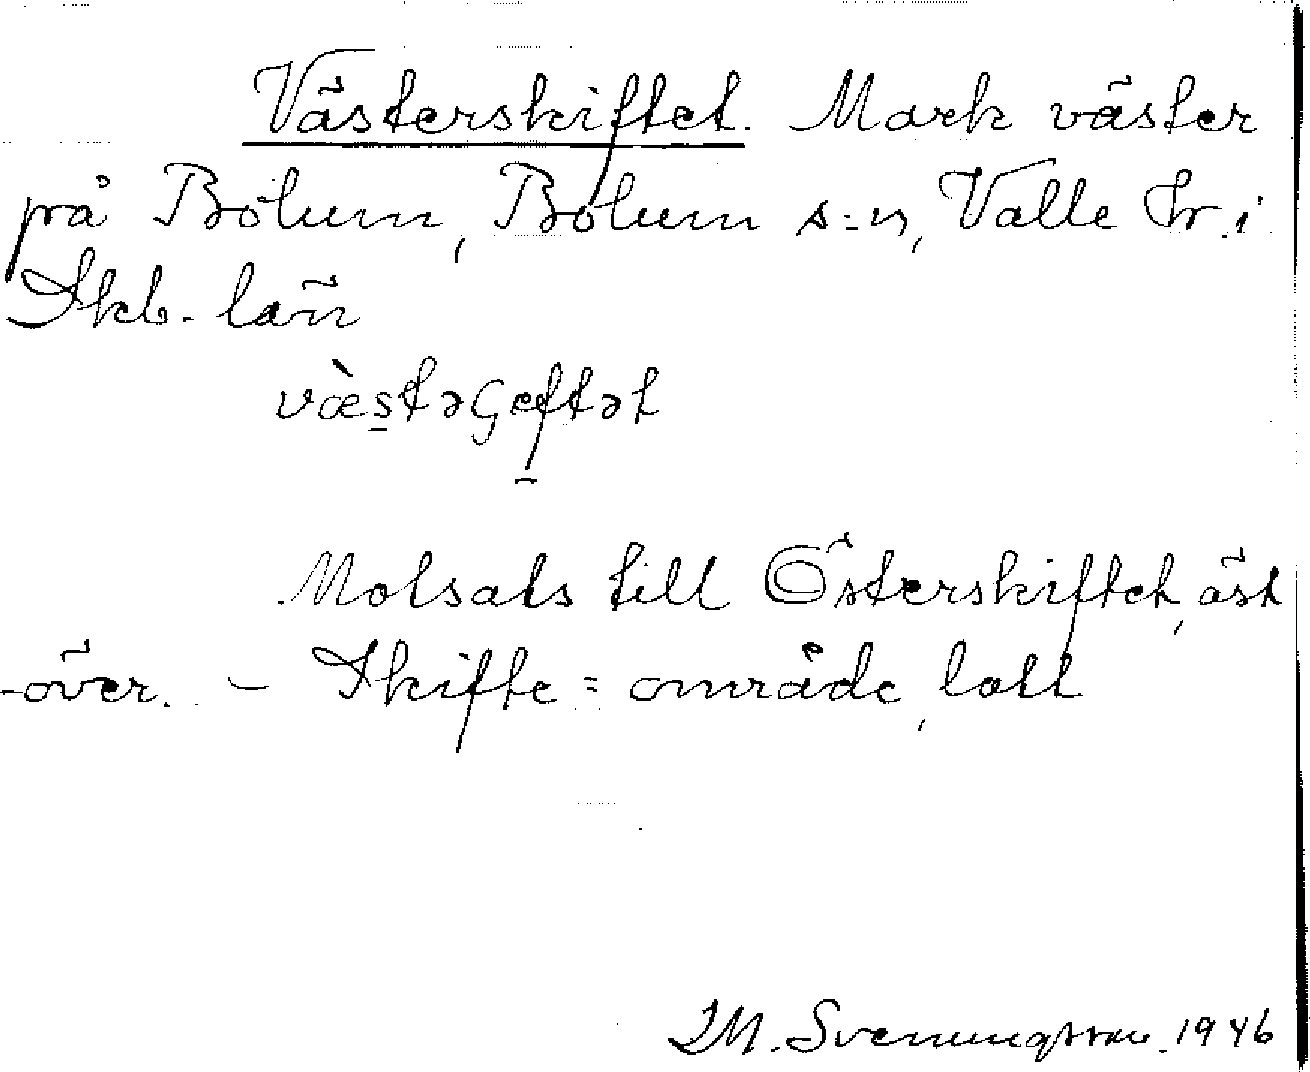 Västerskiftet. Mark väster
på Bolum, Bolum s:n, Valle Hr. i
Skb. län
væ̀stəɢeftət
Motsats till Österskiftet, öst
-över. - Skifte = område, lott
Svenungsson. 1946